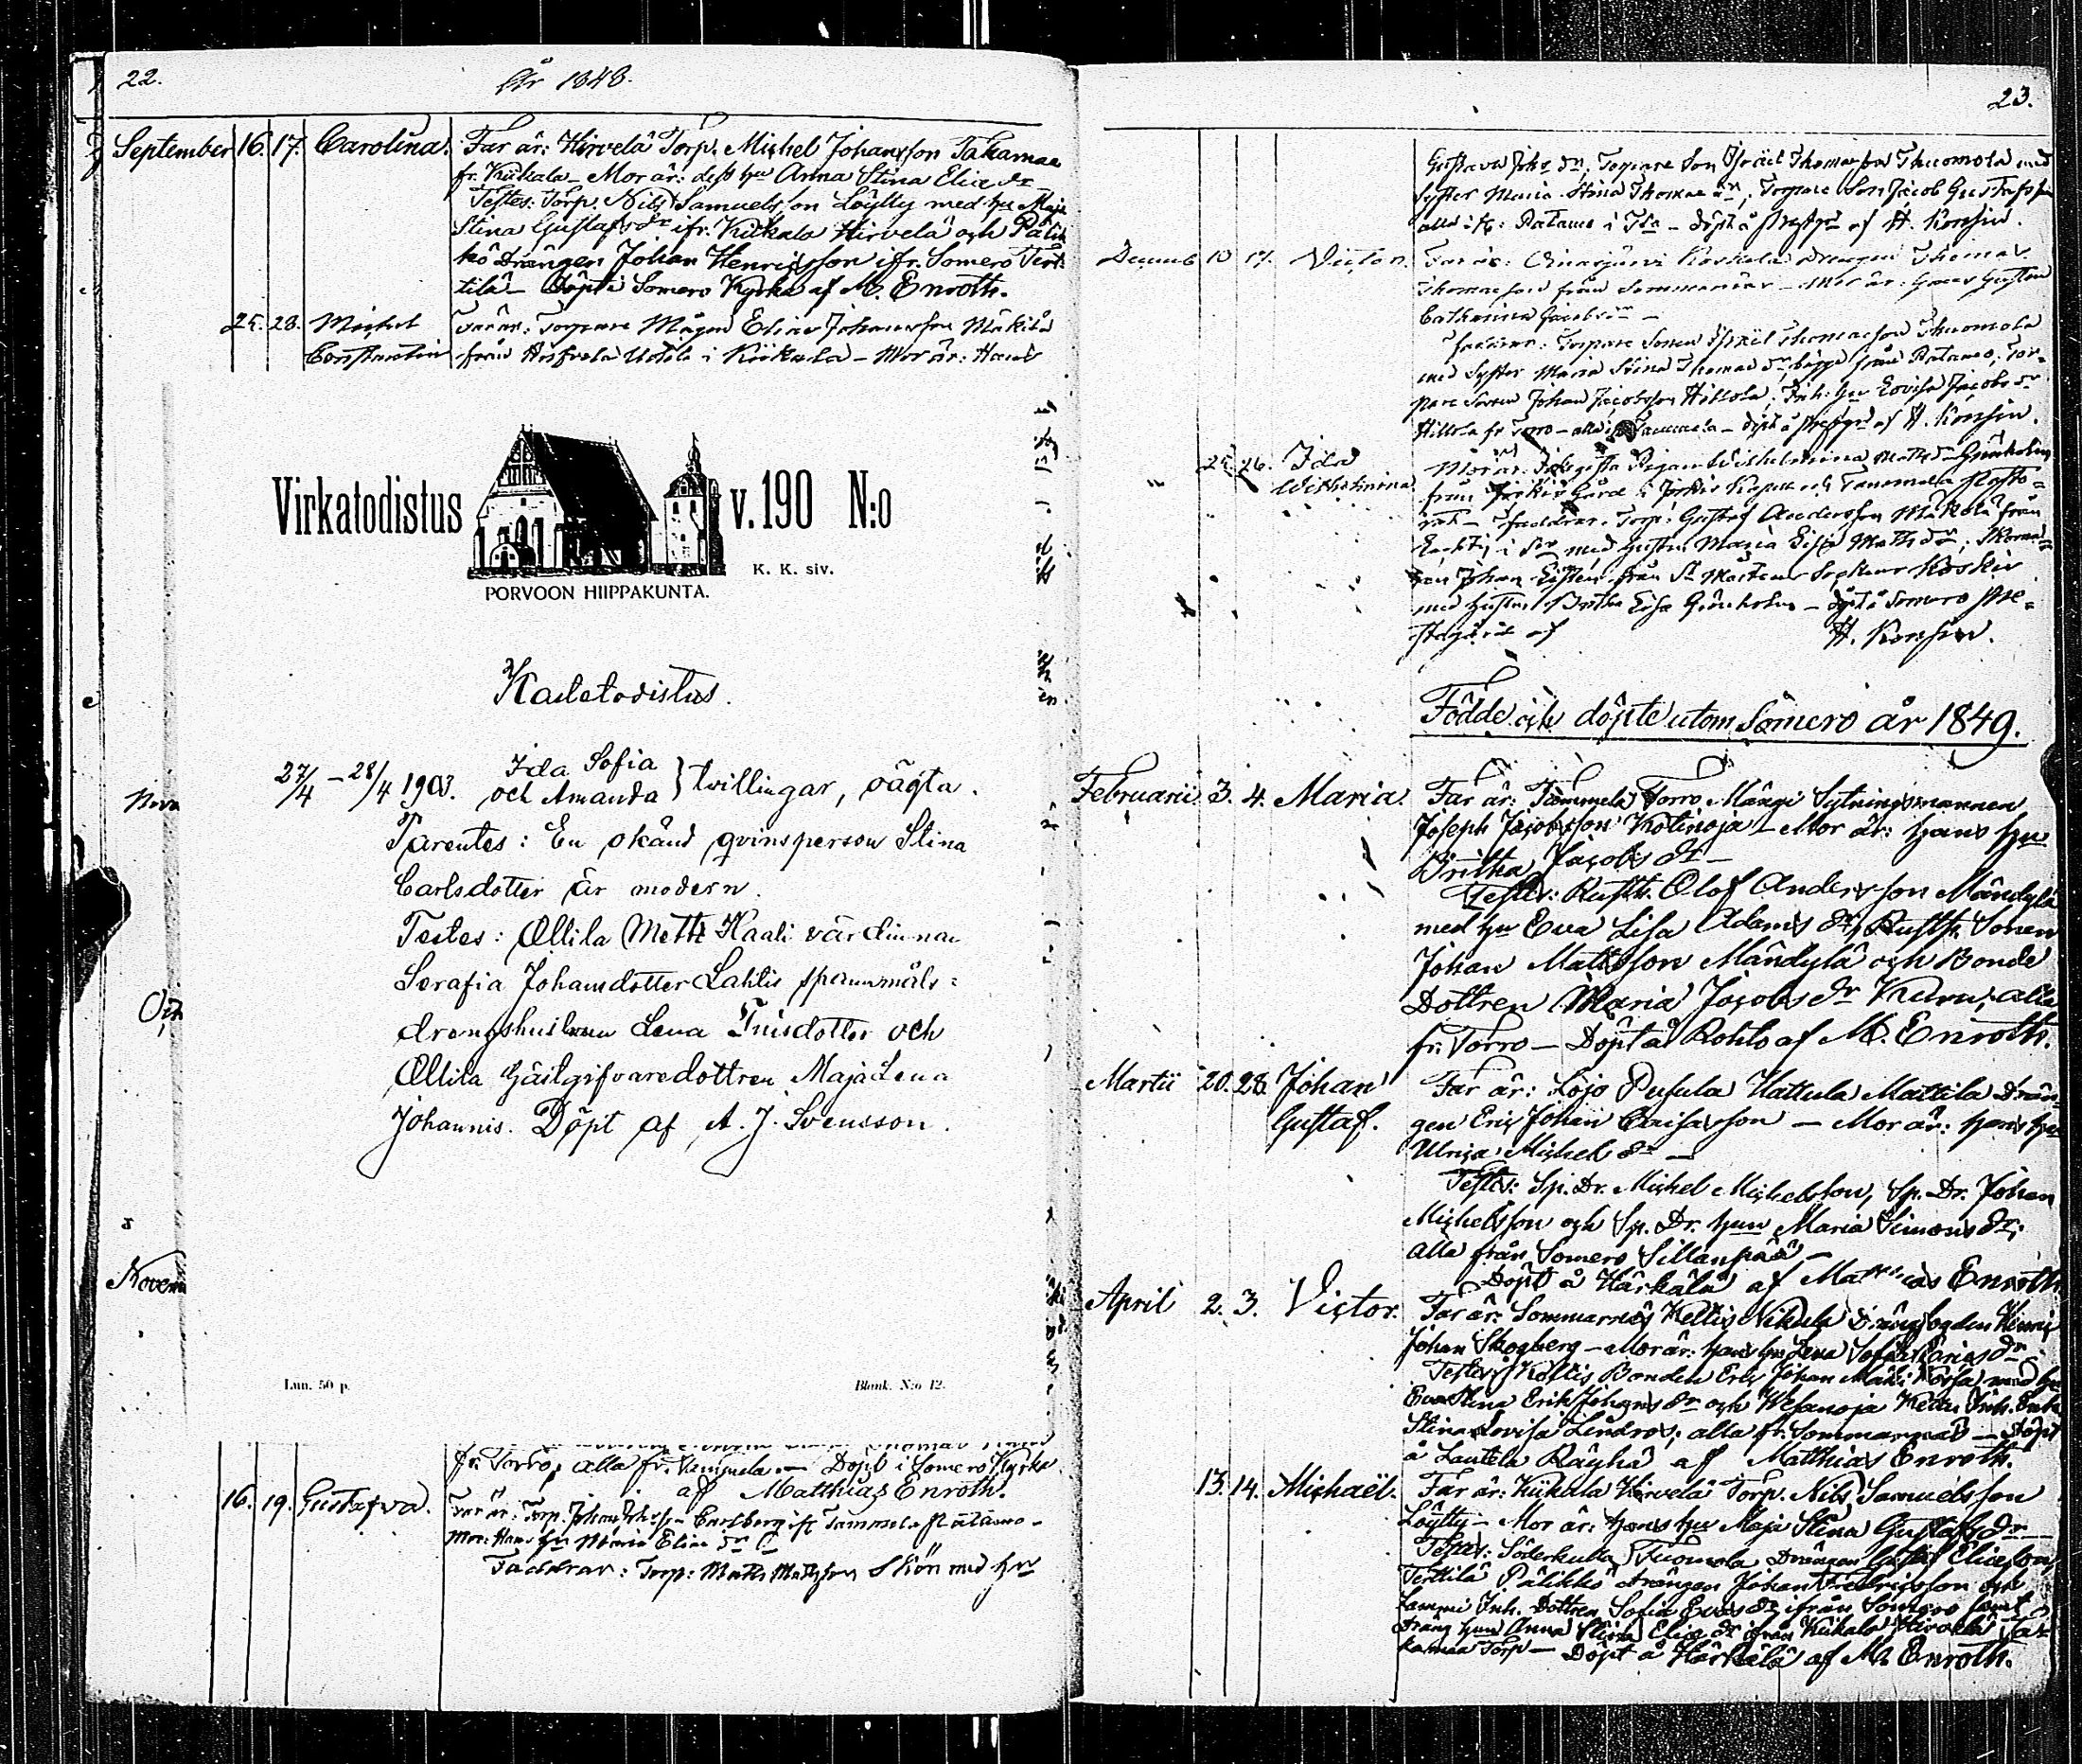 22.
År 1848.
September 16. 17. Carolina. Far är: Hirvelä Torp. Michel Johansson Takamaa
fr. Kiikala - Mor är: dess hu Anna Stina Eliæ dr
Testes: Torp. Nils Samuelsson Löytty med hu Maja
Stina Gustafs dr ifr. Kiikala Hirvelä och Pälik
kö Drängen Johan Henricsson ifr. Somero Tert-
tilä - Döpt i Somero Kyrka af M. Enroth.
25. 28. Michel Far är: Torpare Mågen Elias Johansson Mäkilä
Constantin från Hirsjärvi i Kiikala - Mor är: Hans
Virkatodistus v. 190 N:o
K. K. siv.
PORVOON HIIPPAKUNTA.
Kastetodistus.
27/4 - 28/4 1903. Ida Sofia
och Amanda } tvillingar, oägta.
Parentes: En okänd qvinsperson Stina
Carlsdotter är modern.
Testes: Ollila Matti Kaali värdinnan
Serafia Johansdotter Lahtis spannmåls=
drengshustrun Lena Thisdotter och
Ollila Gästgifvaredottren Maja Lena
Johannis. Döpt af A. J. Svensson.
Novem
Lun. 50 p. Blank. N:o 12.
fr. Torro, alla fr. Tammela. - Döpt i Somero Kyrka
af Matthias Enroth.
16. 19. Gustafva. Far är: Torp. Johan Johsson Carlberg ifr Tammela Ratamo -
Mor: Hans hu Maria Eliæ dr
Faddrar: Torp: Matts Mattsson Skön med hu
23.
Gustava Johs dr, Torpare Son Israel Thomasson Thuomola med
syster Maria Stina Thomae dr, Torpare Son Jacob Gustafsson
alla fr: Ratamo i Tla - döpt å prestgd af H. Konsin.
10 17. Victor. Far är: Koskela drängen Thomas
Thomasson från Sommarnäs - Mor är: Hans hustru
Catharina Jacobs dr -
Faddrar: Torpare Sonen Israel Thomasson Thuomola
med Syster Maria Stina Thomae dr, bägge från Ratamo, Tor-
pare Sonen Johan Jacobsson Hillola, Inh. hu Lovisa Jacobs dr
Hillola fr Torro - alla i Tammela - döpt å prestgd af H. Konsin.
" 25. 26. Ida Mor är: Pigan Wilhelmina Matts dr Grönholm
Wilhelmina från Jockis Gård i Jockis Kapell och Tammela Pasto=
rat - Faddrar. Torp: Gustaf Andersson Mäkelä från
med hustru Maria Lisa Matts dr; Skoma=
ren Johan från St Mårtens Socken Koskis
med hustru Britha Lisa Grönholm - döpt å Somero Pre=
stegård af H. Konsin.
Födde och döpte utom Somero år 1849.
Februarii 3. 4. Maria. Far är: Tammela Torro Mängi Sytningsmannen
Joseph Jacobsson Kotinoja - Mor är: hans hu
Britha Jacobs dr -
Testes: Rusth. Olof Andersson Mändylä
med hu Eva Lisa Adams dr, Rusth. Sonen
Johan Mattsson Mändylä och Bonde
Dottren Maria Jacobs dr Kuru; alla
fr. Torro - Döpt å Rohlo af M. Enroth.
Martii 20. 28. Johan Far är: Lojo Pusula Hattula Mattila Drän-
Gustaf. gen Eric Johan Caisasson - Mor är: hans hu
Ulrica Michels dr -
Testes: Sp. Dr. Michel Michelsson, Sp. Dr. Johan
Michelsson och Sp. Dr. hun Maria Simons dr;
alla från Somero Sillanpää -
Döpt å Härkälä af Matthias Enroth
April 2. 3. Victor. Far är: Sommarnäs Keltis Nikula Drängfogden Henric
Johan Skogberg - Mor är: hans hu Lena Sofia Caries dr -
Testes: Koltis Bonden Eric Johan Mäki Körsa med hu
Eva Stina Erik Johans dr och Wesanoja Kedu Inh. Enk.
Stina Lovisa Lindros; alla fr. Sommarnäs - Döpt
å Lautela Räyhä af Matthias Enroth.
13. 14. Michaël. Far är: Kiikala Hirvelä Torp. Nils Samuelsson
Löytty - Mor är: hans hu Maja Stina Gustafs dr -
Testes: Söderkulla Tuomola Drängen Gustaf Eliæson,
Terttilä Pälikkö drängen Johan Fredricsson och
Lammi Inh. Dottren Sofia Evas dr ifrån Somero samt
dräng hun Anna Stina Eliæ dr från Kiikala Hirvelä Ta-
kamaa Torp - Döpt å Härkälä af M. Enroth.